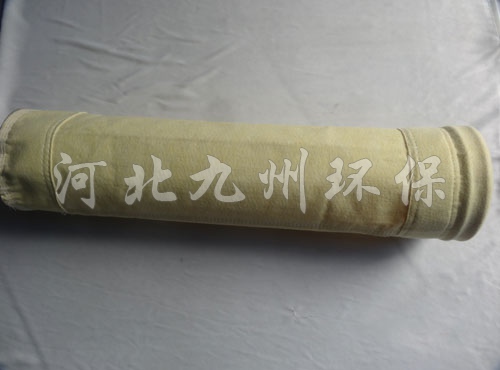 河北九州环保